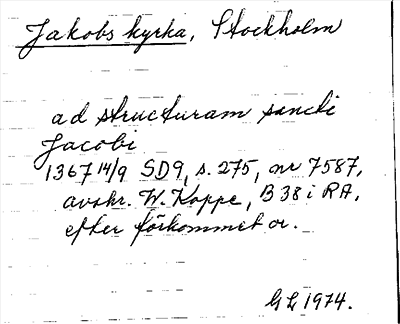 Jakobs kyrka, Stockholm
ad structuram sancti
Jacobi
1367 14/9 SD9, s. 275, nr 7587,
avskr. W. Koppe, B 38 i RA,
efter förkommet or.
GL 1974.